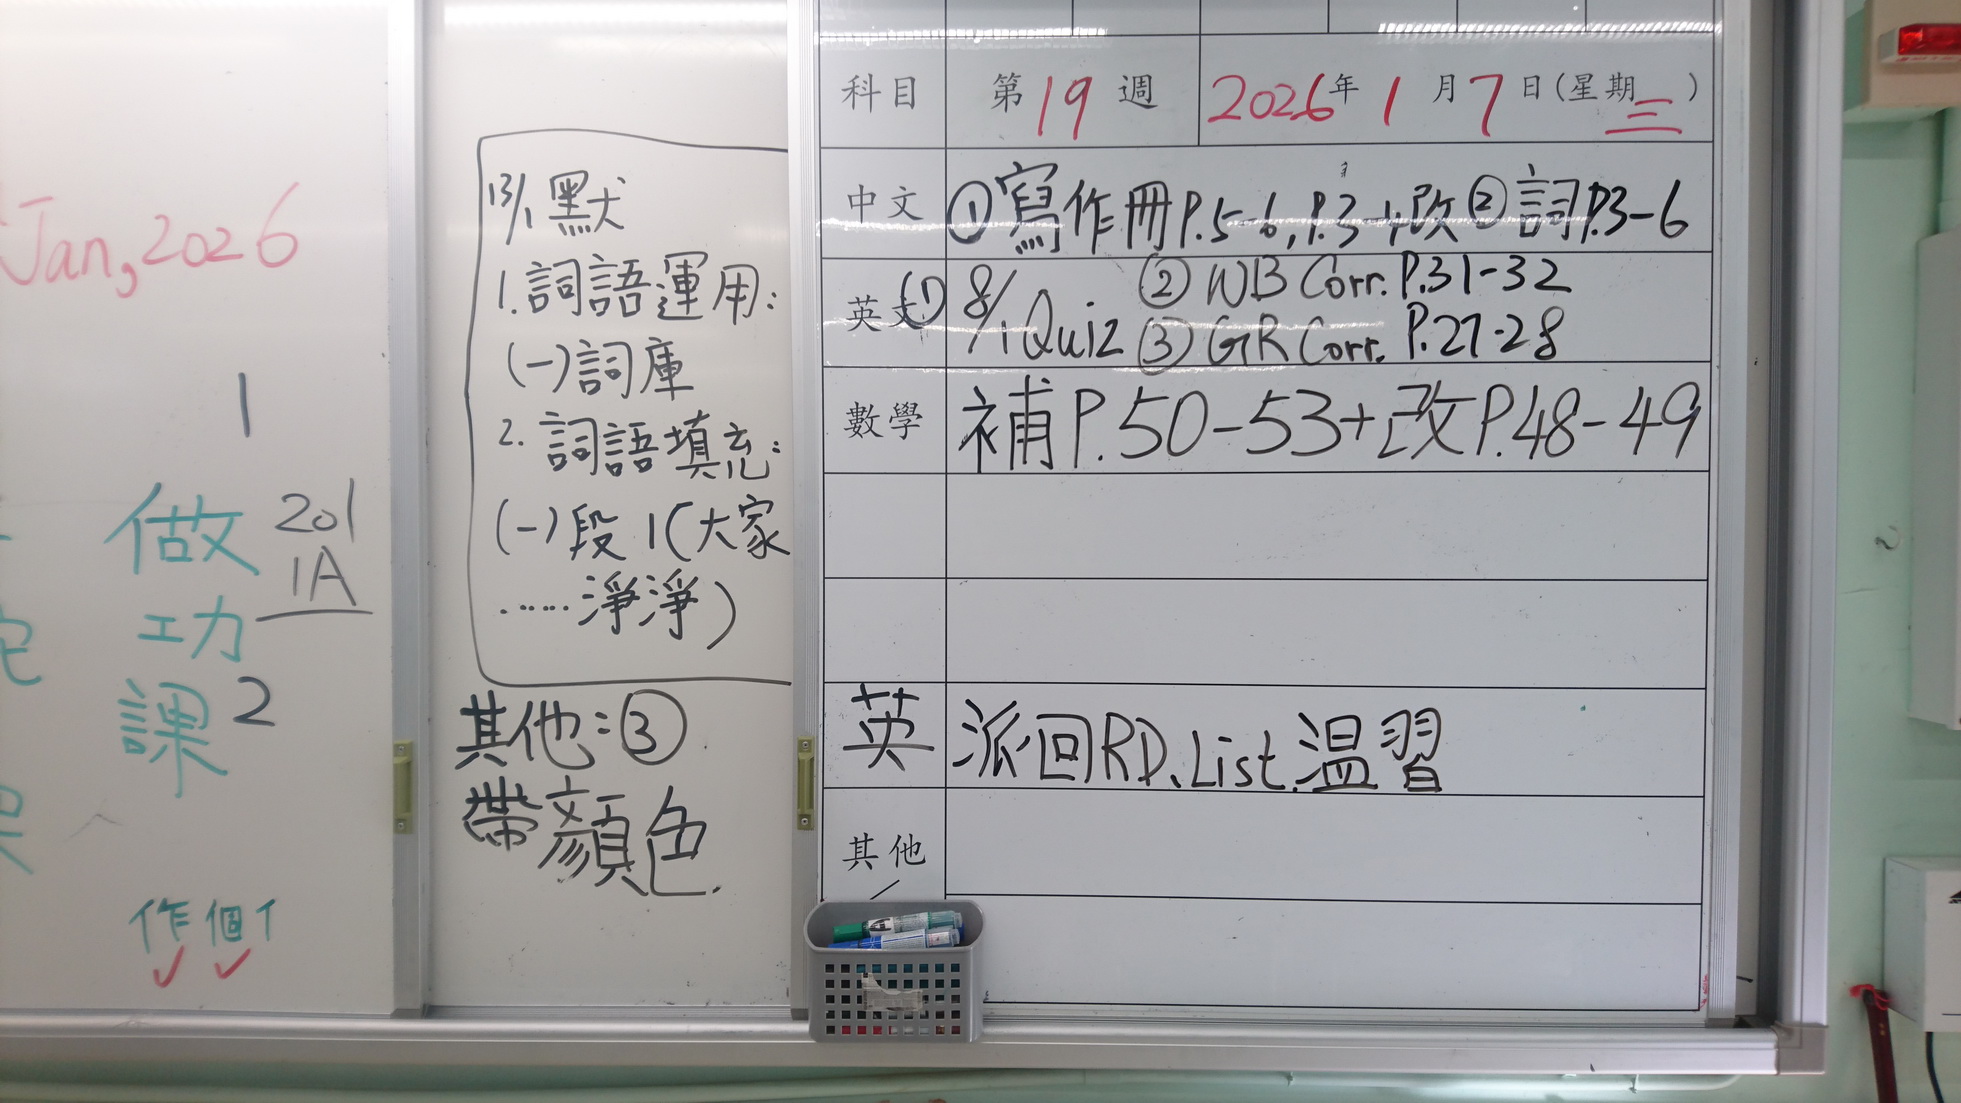 Jan, 2026
1
做
功
課
201
1A
2
作 個
13/1 默
1. 詞語運用:
(一)詞庫
2. 詞語填充:
(一)段1(大家
......淨淨)
其他:③
帶顏色
科目 第19週 2026年1月7日(星期三)
中文 ①寫作冊P.5-6, P.3+改 ②詞P.3-6
英文 ① 8/1 Quiz ② WB Corr. P.31-32
③ GR Corr. P.27-28
數學 補P.50-53+改P.48-49
英 派回RD. List. 溫習
其他